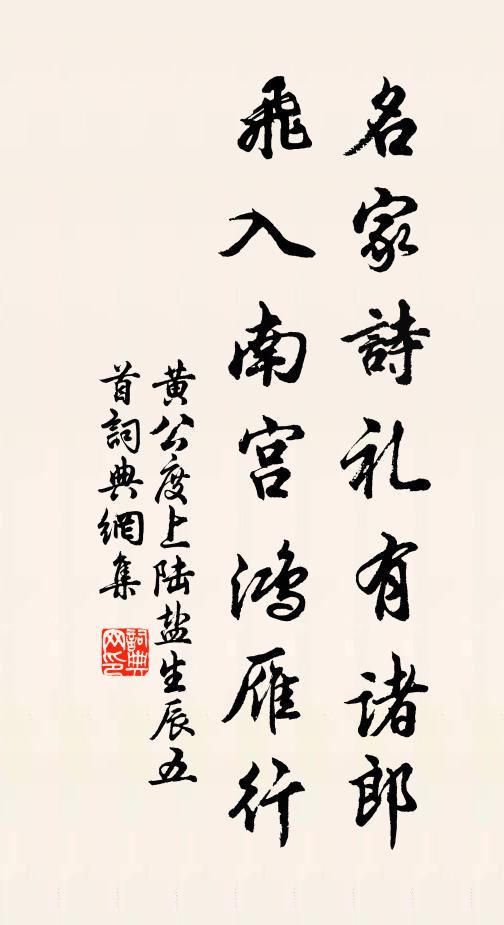 名家詩礼有諸郎
飛入南宫鴻雁行
黄公度上陆盐生辰五
首詞典網集
詞典
网印